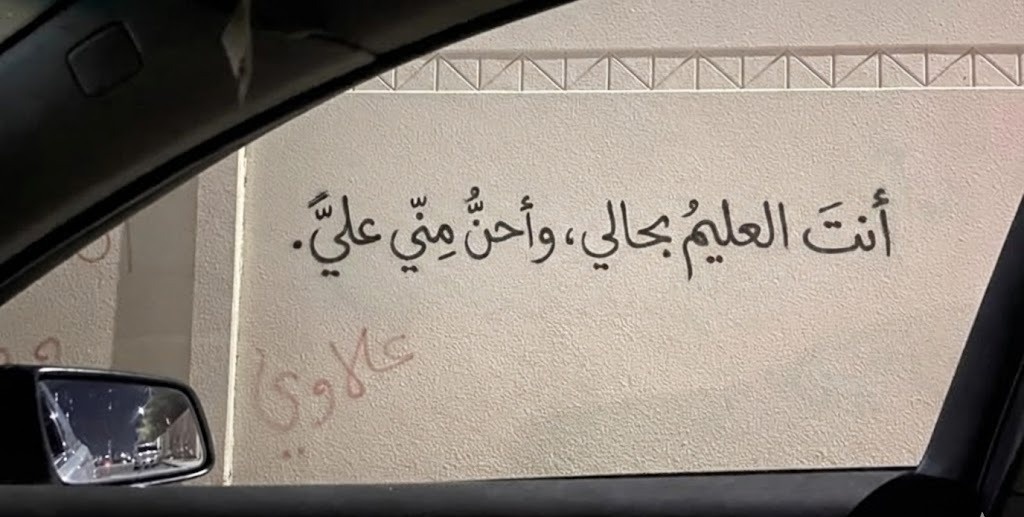 أنتَ العليمُ بحالي، وأحنُّ مِنّي عليَّ.
علاوي